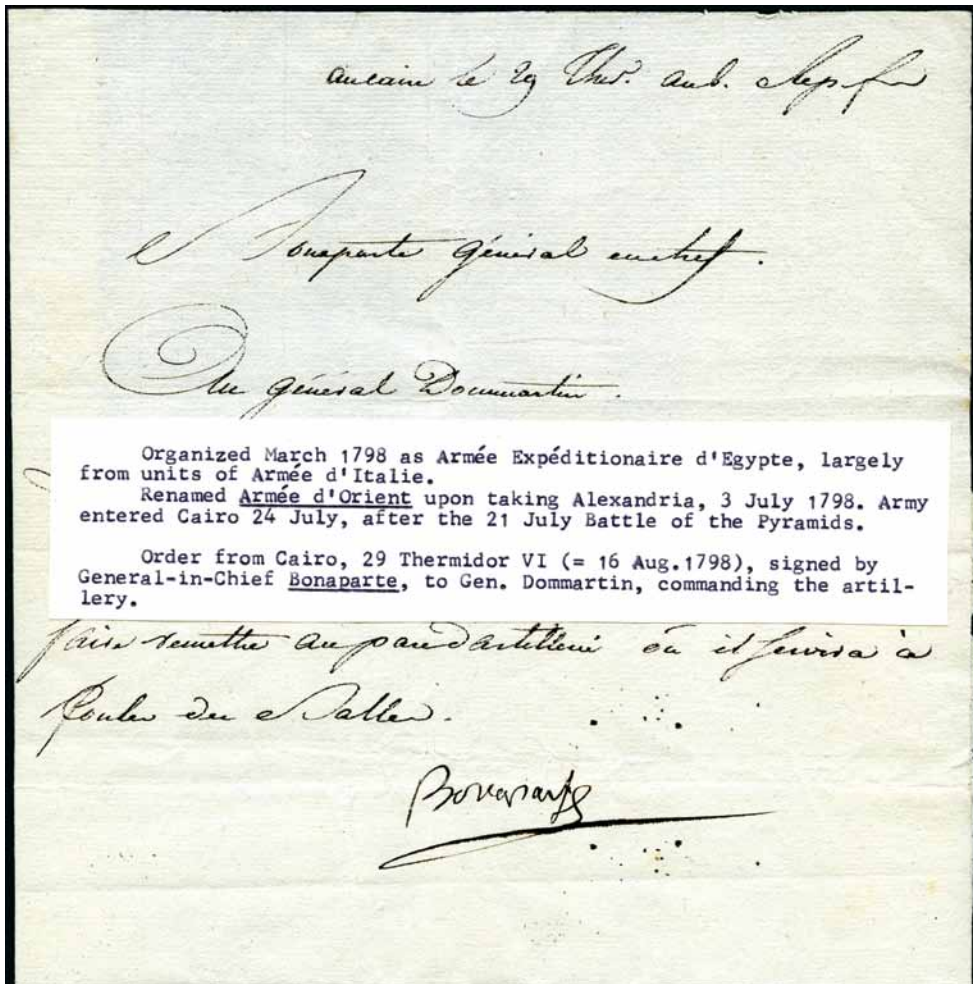 au caire le 29 Ther. an 6.
Bonaparte général en chef.
Au général Dommartin.
Organized March 1798 as Armée Expéditionaire d'Egypte, largely
from units of Armée d'Italie.
Renamed Armée d'Orient upon taking Alexandria, 3 July 1798. Army
entered Cairo 24 July, after the 21 July Battle of the Pyramids.
Order from Cairo, 29 Thermidor VI (= 16 Aug.1798), signed by
General-in-Chief Bonaparte, to Gen. Dommartin, commanding the artil-
lery.
faire remettre au parc d'artillerie où il servira à
couler des Balles.
Bonaparte